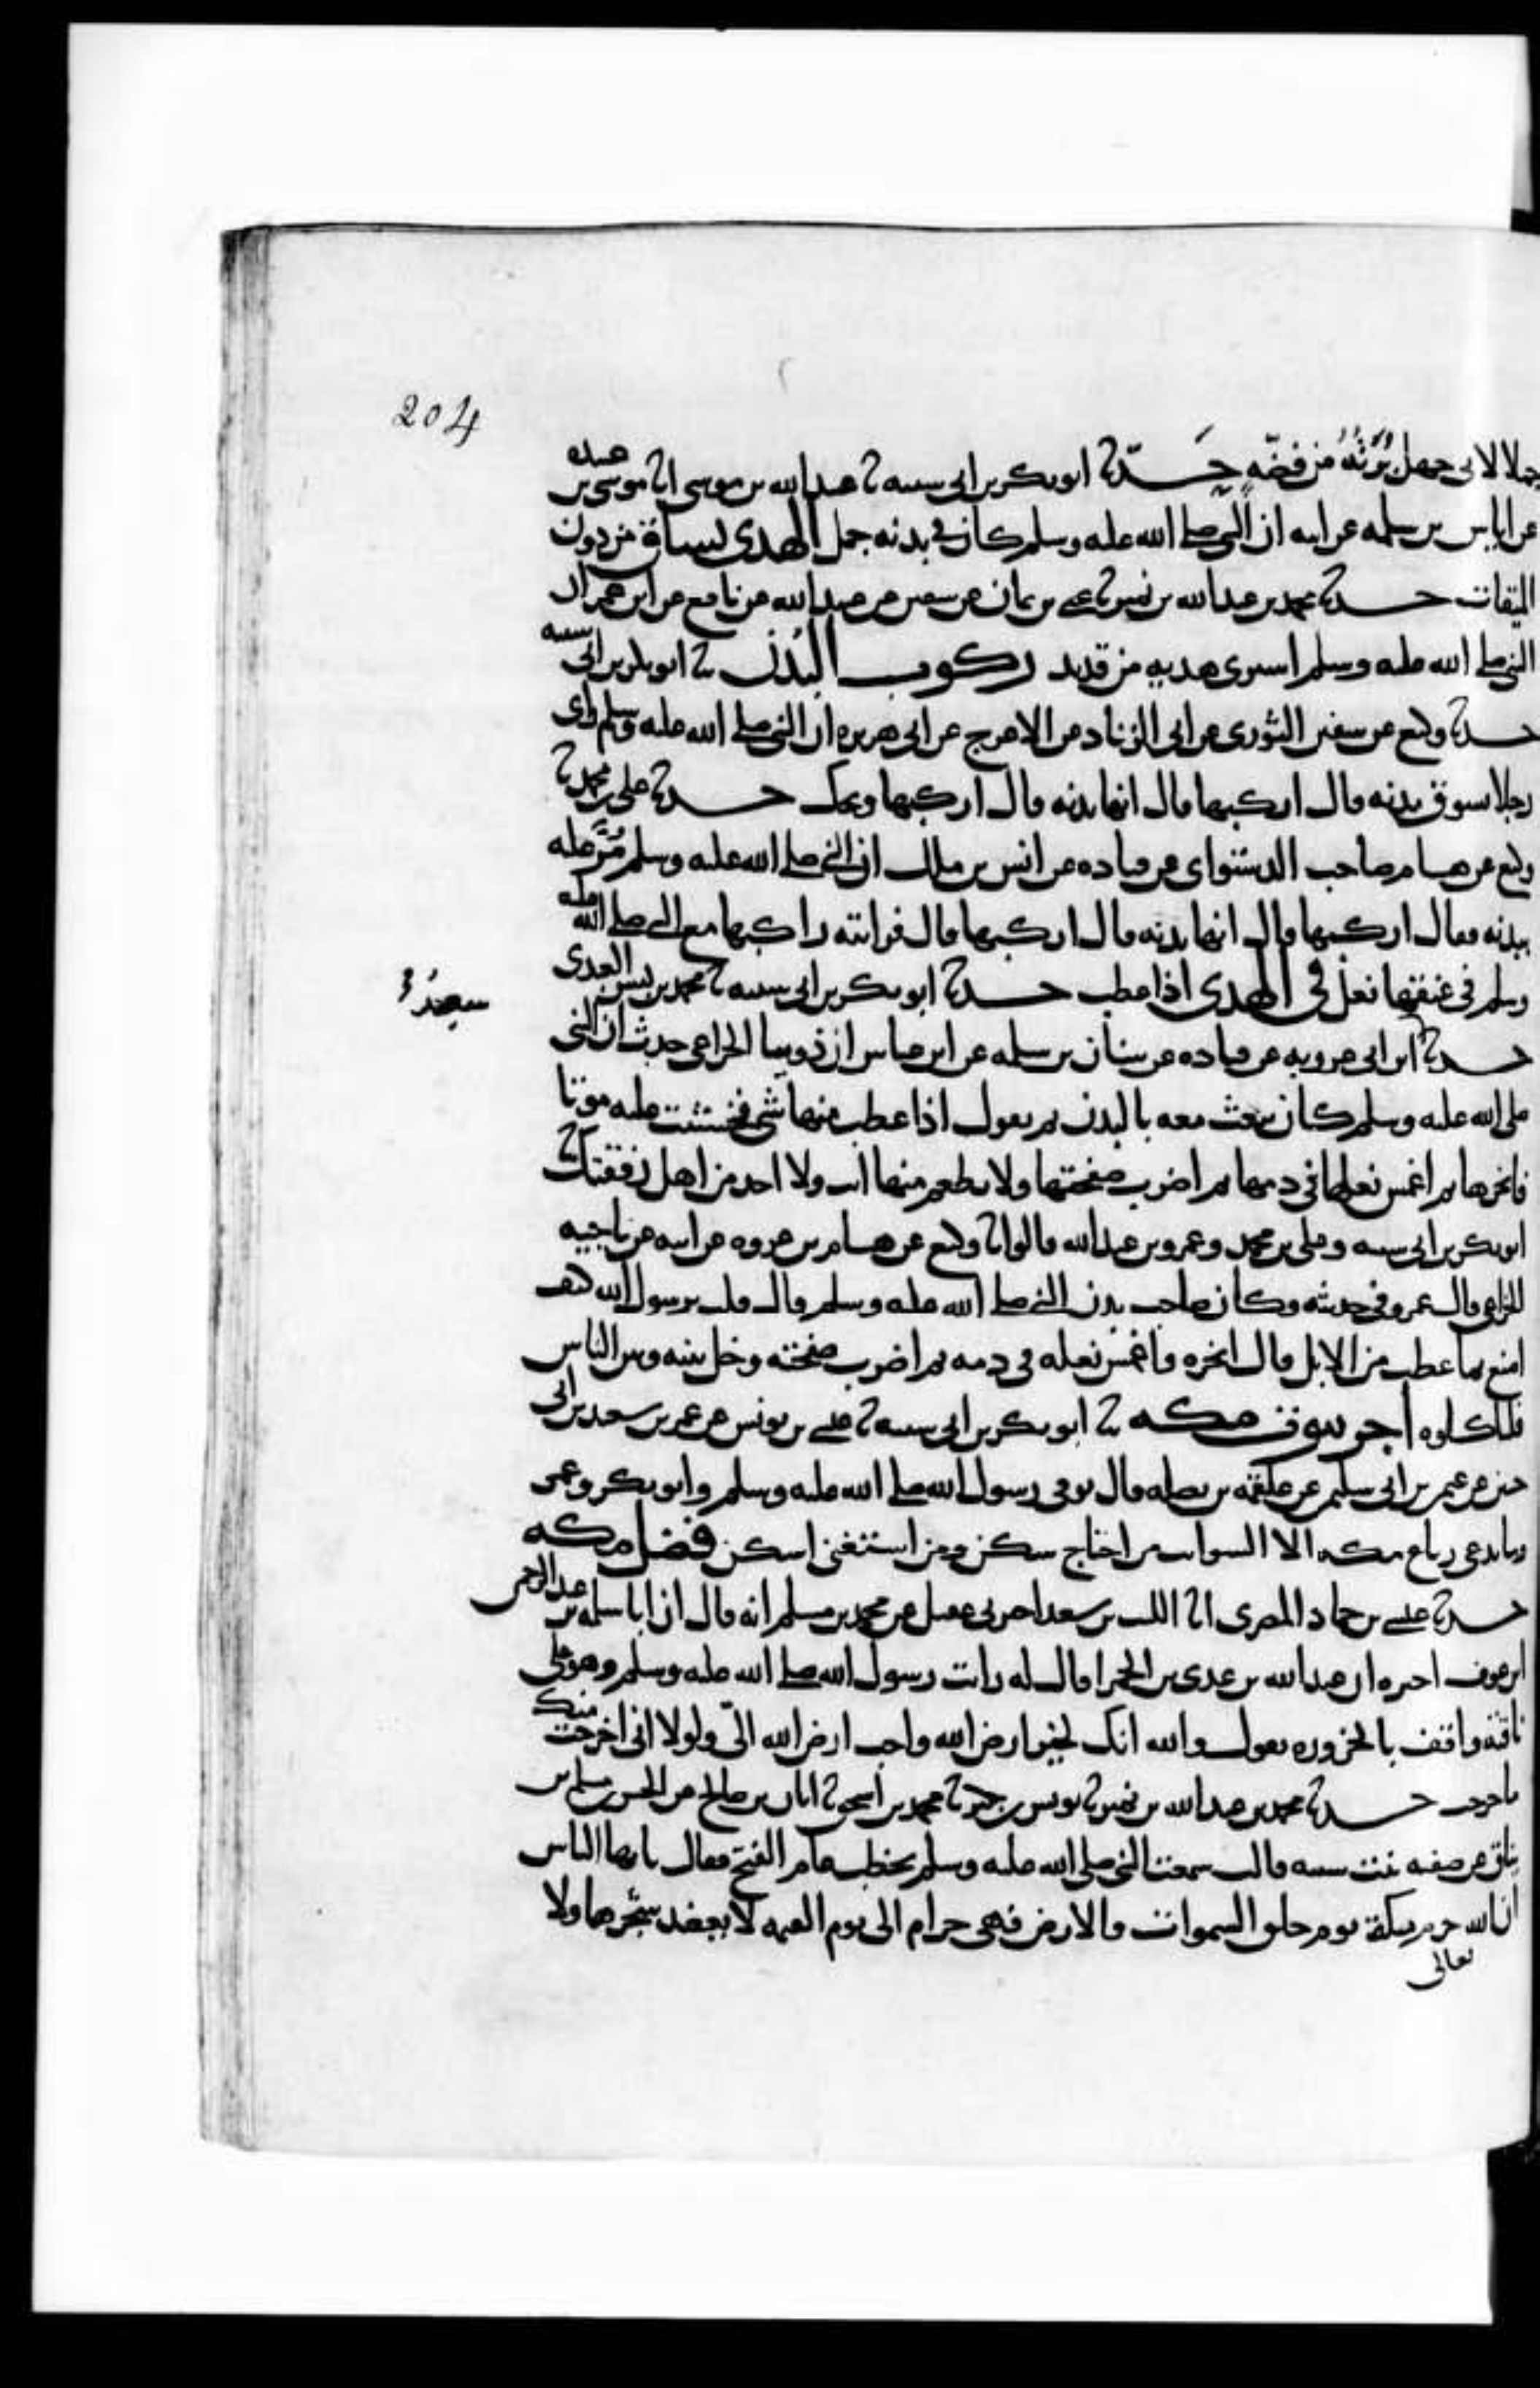 204
جملا لابى جهل بُرَتُهُ من فضّهٍ حدثنا ابو بكر بن ابى شيبه نا عبيد الله بن موسى انا موسى بن عبيده
عن اياس بن سلمه عن ابيه ان النبى صلى الله عليه وسلم كان فى بدنه جمل الهدى يساق من دون
الميقات حدثنا محمد بن عبد الله بن نمير نا يحيى بن يمان عن سفين عن عبيد الله عن نافع عن ابن عمر ان
النبى صلى الله عليه وسلم اشترى هديه من قديد ركوب البُدن نا ابو بكر بن ابى شيبه
حدثنا وكيع عن سفين الثورى عن ابى الزناد عن الاعرج عن ابى هريره ان النبى صلى الله عليه وسلم راى
رجلا يسوق بدنه قال اركبها قال انها بدنه قال اركبها ويحك حدثنا على بن محمد نا
وكيع عن هشام صاحب الدستواى عن قتاده عن انس بن ملك ان النبى صلى الله عليه وسلم مُرَّ عليه
ببدنه فقال اركبها قال انها بدنه قال اركبها قال فرايته راكبها مع النبى صلى الله عليه
وسلم فى عنقها نعل فى الهدى اذا عطب حدثنا ابو بكر بن ابى شيبه نا محمد بن بشر العبدى
سعيدُ
حدثنا ابن ابى عروبه عن قتاده عن سنان بن سلمه عن ابن عباس ان ذويبا الخزاعى حدث ان النبى
صلى الله عليه وسلم كان يبعث معه بالبدن ثم يقول اذا عطب منها شى فخشيت عليه موتا
فانحرها ثم اغمس نعلها فى دمها ثم اضرب صفحتها ولا تطعم منها انت ولا احد من اهل رفقتك نا
ابو بكر بن ابى شيبه وعلى بن محمد وعمرو بن عبد الله قالوا نا وكيع عن هشام بن عروه عن ابيه عن ناجيه
الخزاعى قال عمرو فى حديثه وكان صاحب بدن النبى صلى الله عليه وسلم قال قلت يرسول الله كيف
اصنع بما عطب من الابل قال انحره واغمس نعله فى دمه ثم اضرب صفحته وخل بينه وبين الناس
فلياكلوه اجر بيوت مكه نا ابو بكر بن ابى شيبه نا عيسى بن يونس عن عمر بن سعيد بن ابى
حسين عن عثمن بن ابى سليمن عن علقمه بن نضله قال توفى رسول الله صلى الله عليه وسلم وابو بكر وعمر
وما تدعى رباع مكه الا السوايب من احتاج سكن ومن استغنى اسكن فضل مكه
حدثنا عيسى بن حماد المصرى انا الليث بن سعد اخبرنى عقيل عن محمد بن مسلم انه قال ان ابا سلمه بن عبد الرحمن
ابن عوف اخبره ان عبد الله بن عدى بن الحمرا قال له رايت رسول الله صلى الله عليه وسلم وهو على
ناقته واقف بالحزوره يقول والله انك لخير ارض الله واحب ارض الله الىّ ولولا انى اخرجت منك
ما خرجت حدثنا محمد بن عبد الله بن نمير نا يونس بن بكير نا محمد بن اسحق نا ابان بن صالح عن الحسن بن مسلم بن
يناق عن صفيه بنت شيبه قالت سمعت النبى صلى الله عليه وسلم يخطب عام الفتح فقال يا ايها الناس
ان الله حرم مكة يوم خلق السموات والارض فهى حرام الى يوم القيمه لا يعضد شجرها ولا
تعالى